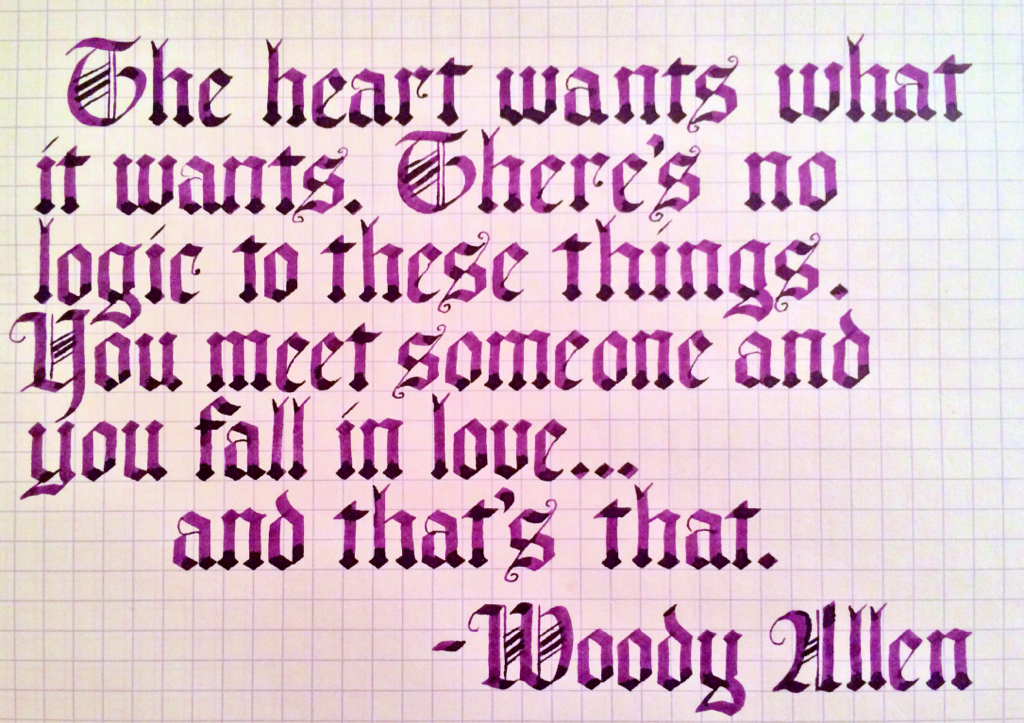 The heart wants what
it wants. There's no
logic to these things.
You meet someone and
you fall in love...
and that's that.
-Woody Allen